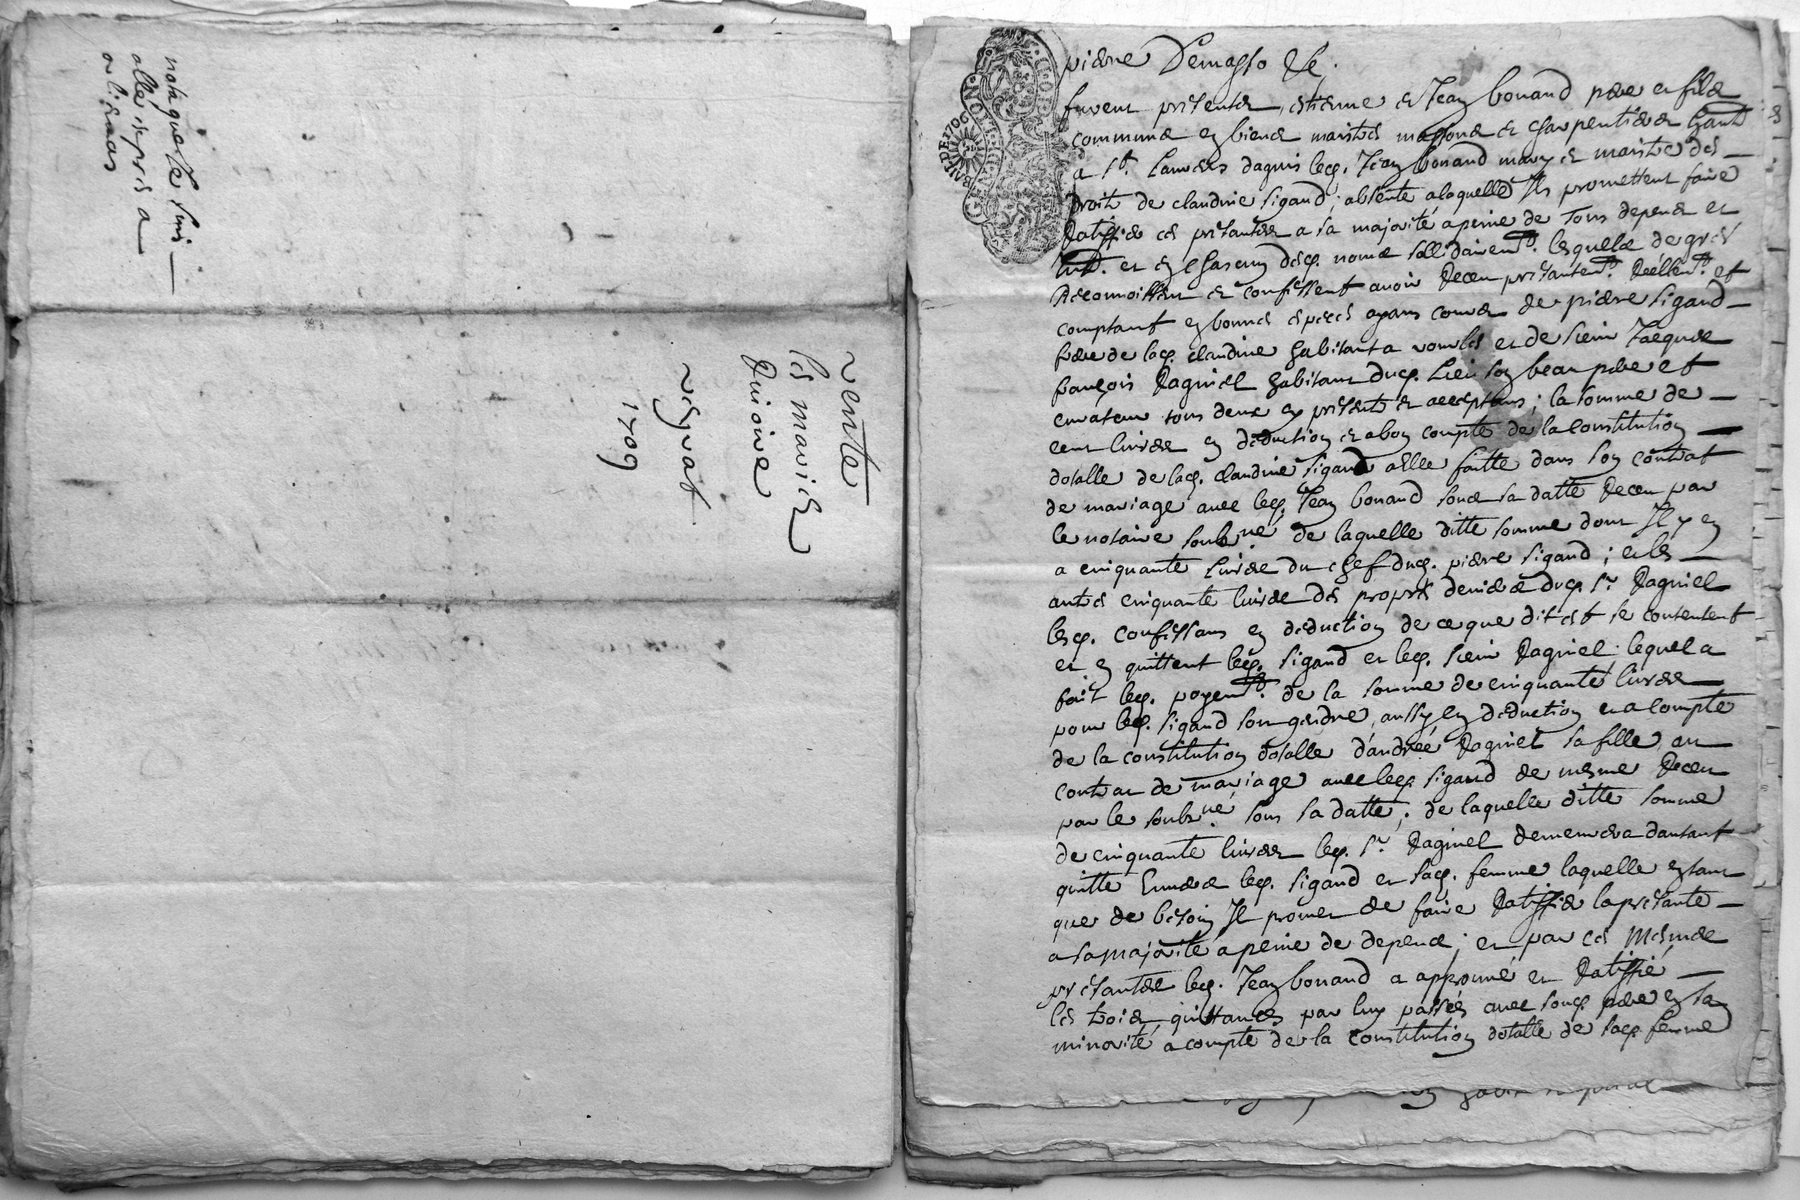 nota que le susi
allé est pris a
orlienas
vente
les mariés
quioive
reynat
1709
GNALITE DE LION
BAIL DE 1706
pierre Demasso &c.
furent presents, estienne et Jean bonand pere et fils
communs en biens maistres massons et charpentiers habit
a St. Laurens dagnis led. Jean bonand mary et maistre des
droits de claudine sigaud, absente a laquelle Ils promettent faire
Ratiffier ces presantes a sa majorité a peine de tous depens et
Intd. et en chascun desd. noms sollidairemt. lesquels de grés
Reconnoissent et confessent avoir Receu presantemt. Réellemt. et
comptant en bonnes especes ayans cours de pierre sigaud
frere de lad. claudine habitant a vourles et de sieur Jacques
françois Ragniel habitant dud. Lieu son beau pere et
curateur tous deux cy presents et acceptans; la somme de
cent livres en deduction et a bon compte de la constitution
dotalle de lad. claudine sigaud a elle faitte dans son contrat
de mariage avec led. Jean bonand sous sa datte Receu par
le notaire soubzné. de laquelle ditte somme dont Il y en
a cinquante livres du chef dud. pierre sigaud; et les
autres cinquante livres des propres deniers dud. sr. Ragniel
lesd. confessans en deduction de ce que dit est se contentent
et en quittent led. sigaud et led. sieur Ragniel; lequel a
fait led. payemt. de la somme de cinquante livres
pour led. sigaud son gendre, aussy en deduction et a compte
de la constitution dotalle d'andrée Ragniel sa fille, au
contrat de mariage avec led. sigaud de mesme Receu
par le soubzné. sous sa datte; de laquelle ditte somme
de cinquante livres led. sr. Ragniel demeurera dautant
quitte Envers led. sigaud et sad. femme laquelle en tant
que de besoin Il promet de faire Ratiffier la presante
a sa majorité a peine de depens; et par ces mesmes
presantes led. Jean bonand a approuvé et Ratiffié
les trois quittances par luy passées avec sond. pere en sa
minorité a compte de la constitution dotalle de sad. femme